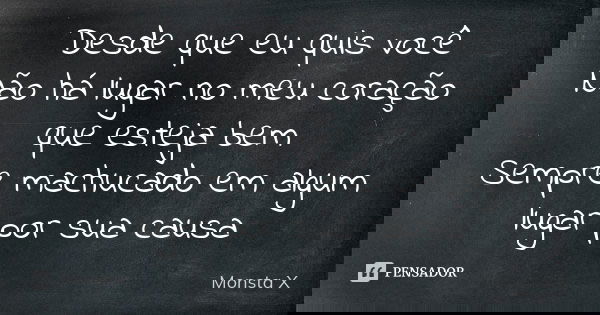 Desde que eu quis você
Não há lugar no meu coração
que esteja bem
Sempre machucado em algum
lugar por sua causa
Monsta X
PENSADOR